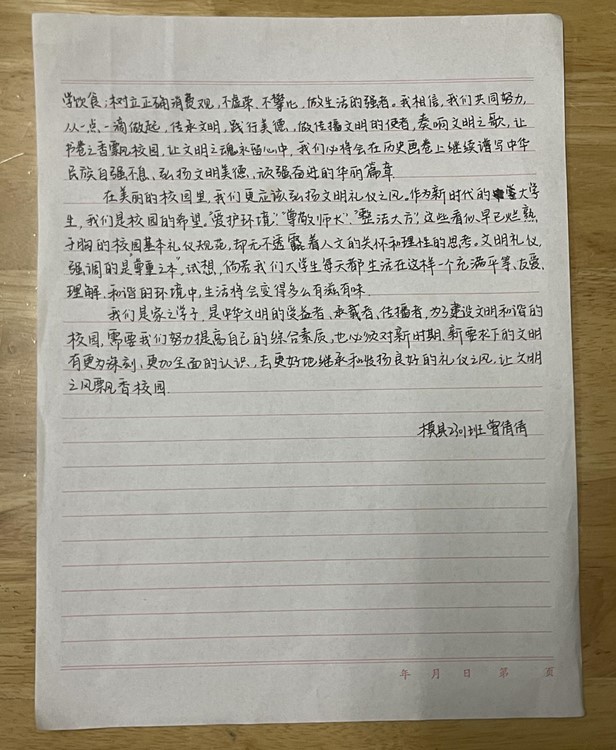 学饮食；树立正确消费观，不虚荣、不攀比，做生活的强者。我相信，我们共同努力，
从一点一滴做起，传承文明，践行美德，做传播文明的使者，奏响文明之歌，让
书卷之香飘校园，让文明之魂永留心中，我们必将会在历史画卷上继续谱写中华
民族自强不息、弘扬文明美德、
奋进的华丽篇章。
在美丽的校园里，我们更应该弘扬文明礼仪之风。作为新时代的大学
生，我们是校园的希望。“爱护环境”、“尊敬师长”、“整洁大方”，这些看似早已烂熟
于胸的校园基本礼仪规范，却无不透露着人文的关怀和理性的思考。文明礼仪，
强调的是“尊重之本”，试想，倘若我们大学生每天都生活在这样一个充满平等、友爱、
理解、和谐的环境中，生活将会变得多么有滋有味。
我们是家之学子，是中华文明的受益者、承载者、传播者，为了建设文明和谐的
校园，需要我们努力提高自己的综合素质，也必须对新时期、新要求下的文明
有更为深刻、更加全面的认识，去更好地继承和发扬良好的礼仪之风，让文明
之风飘香校园。
模具2301班 曾倩倩
年 月 日 第 页